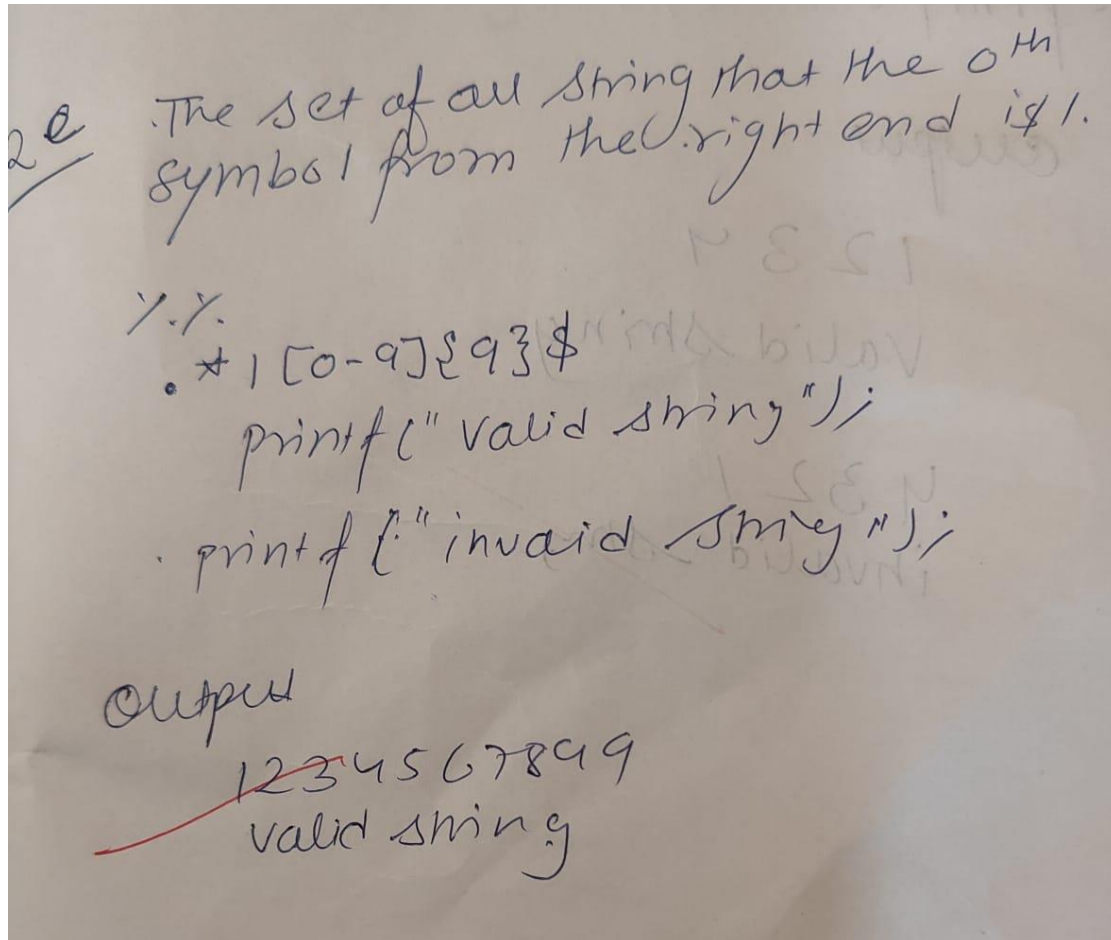 2e The set of all string that the 0th
symbol from the right end is 1.
%.%.
.*1[0-9]{9}$
printf("valid string");
. printf("invaid string");
Output
1234567899
valid string